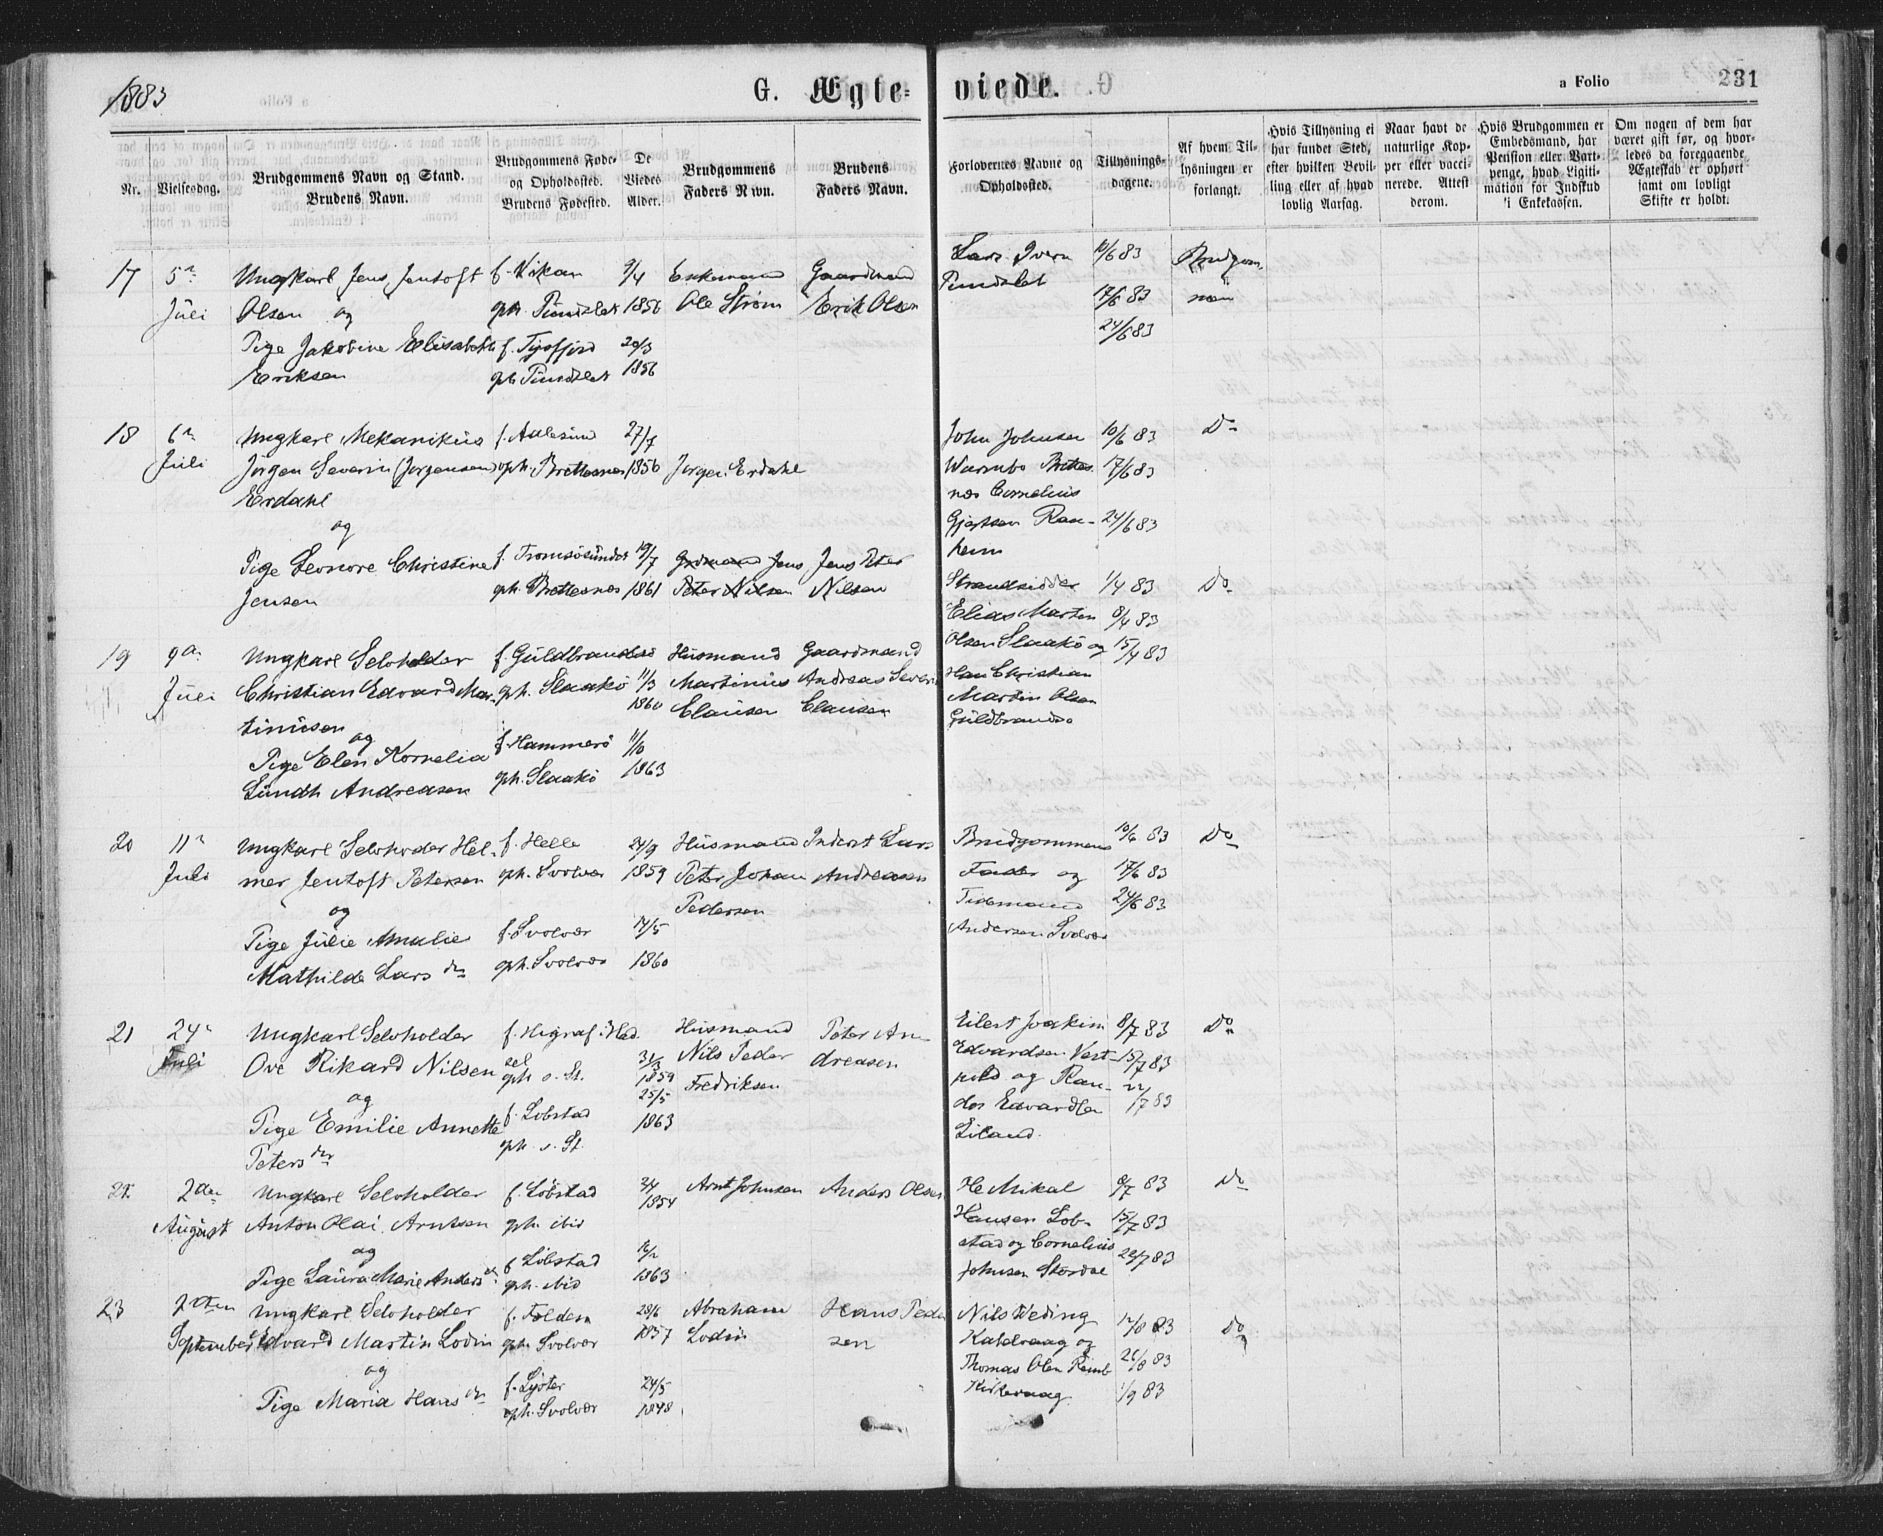 1883
G. Ægte-
viede.
a Folio
231
Nr.
Vielsesdag.
Brudgommens Navn og Stand.
Brudens Navn.
Brudgommens Føde-
og Opholdssted.
Brudens Fødested.
De
Viedes
Alder.
Brudgommens
Faders Navn.
Brudens
Faders Navn.
Forlovernes Navne og
Opholdssted.
Tillysnings-
dagene.
Af hvem Til-
lysningen er
forlangt.
Hvis Tillysning ei
har fundet Sted,
efter hvilken Bevil-
ling eller af hvad
lovlig Aarsag.
Naar havt de
naturlige Kop-
per eller vacci-
nerede. Attest
derom.
Hvis Brudgommen er
Embedsmand, har
Pension eller Vart-
penge, hvad Ligiti-
mation for Indskud
i Enkekassen.
Om nogen af dem har
været gift før, og hvor-
ledes da foregaaende
Ægteskab er ophørt
samt om lovligt
Skifte er holdt.
17
5te
Juli
Ungkarl Jens Jentoft
Olsen og
Pige Jakobine Elisabeth
Eriksen
f. Vikan
oph.
1856
f. Tysfjord
20/3
1856
Ole Strøm
Gaardmand
Erik Olsen
Lars Ivern
10/6 83
17/6 83
24/6 83
Brudgom-
men
18
6te
Juli
Ungkarl Mekanikus
Jørgen Severin (Jørgensen)
Erdahl
og
Pige Leonore Christine
Jensen
f. Aalesund
oph. Brettesnes
27/7
1856
f. Tromsøsundet
oph. Brettesnes
19/7
1861
Jørgen Erdahl
Jens
Peter Nilsen
Jens Peter
Nilsen
John Johnsen
Brettes-
nes Cornelius
10/6 83
17/6 83
24/6 83
Do
19
9de
Juli
Ungkarl Selvholder
Christian Edvard Mar-
tinusen
og
Pige Elen Kornelia
Lundh Andreasen
f. Guldbrandsø
oph. Slaakø
11/3
1860
f. Hammerø
oph. Slaakø
1863
Husmand
Martinus
Clausen
Gaardmand
Andreas Severin
Clausen
Strandsidder
Elias Marten
Olsen Slaakø og
Hans Christian
Martin Olsen
Guldbrandsø
1/4 83
8/4 83
15/4 83
Do
20
11te
Juli
Ungkarl Selvholder Hel-
mer Jentoft Petersen
og
Pige Julie Amalie
Mathilde Larsdr
f. Helle
oph. Svolvær
24/9
1859
f. Svolvær
oph. Svolvær
14/5
1860
Husmand
Peter Johan
Pedersen
Inderst Lars
Andreasen
Brudgommens
Fader og
Tidemand
Andersen Svolvær
10/6 83
17/6 83
24/6 83
Do
21
24de
Juli
Ungkarl Selvholder
Ove Rikard Nilsen
og
Pige Emilie Annette
Petersdr
f. Higraf i Had-
sel
oph. s. St.
31/3
1859
f. Løbstad
oph. s. St.
25/5
1863
Husmand
Nils Peder
Fredriksen
Peter An-
dreasen
Eilert Joakim
Edvardsen Vest-
pold og Ran-
dos Edvardsen
Eiland.
8/7 83
15/7 83
22/7 83
Do
22
2den
August
Ungkarl Selvholder
Anton Olai Arntsen
og
Pige Laura Marie Andersdr
f. Løbstad
oph. ibid
1854
f. Løbstad
oph. ibid
1863
Arnt Johnsen
Anders Olsen
He Mikal
Hansen Løb-
stad og Cornelius
Johnsen Stordal
8/7 83
15/7 83
22/7 83
Do
23
September
Ungkarl Selvholder
Edvard Martin Lodin
og
Pige Maria Hansdr
f. Folden
oph. Svolvær
28/6
1857
oph. Svolvær
24/5
1848
Abraham
Lodin
Hans Peder-
sen
Nils Weding
Kabelvaag og
Thomas Olsen
Kirkevaag
26/8 83
1/9 83
Do